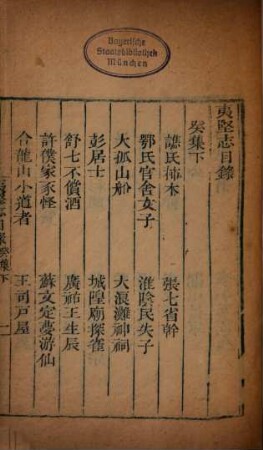 Bayerische
Staatsbibliothek
München
夷堅志目錄
癸集下
譙氏柿木 張七省幹
鄂氏官舍女子 淮陰民失子
大孤山船 大浪灘神祠
彭居士 城隍廟探雀
舒七不償酒 廣祐王生辰
許僕家豕怪 蘇文定夢游仙
合龍山小道者 王司戸屋